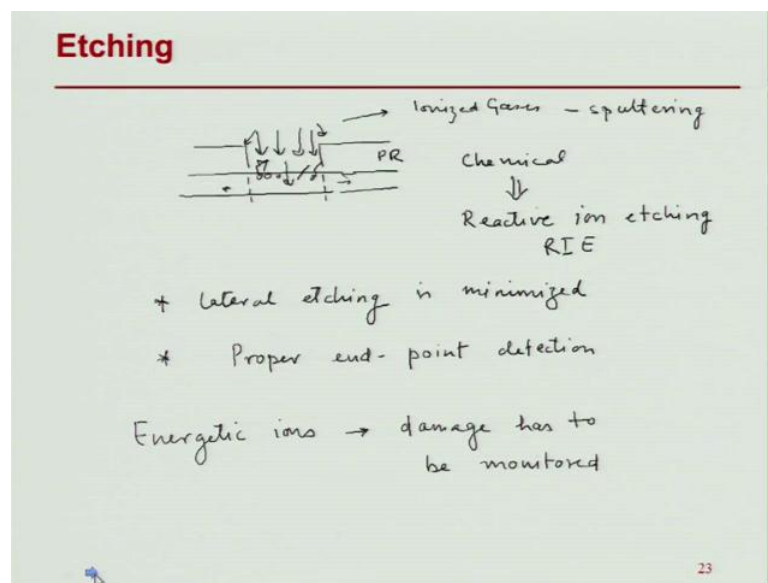 Etching
Ionized Gases - sputtering
PR
Chemical
⇓
Reactive ion etching
RIE
* Lateral etching is minimized
* Proper end-point detection
Energetic ions → damage has to
be monitored
23